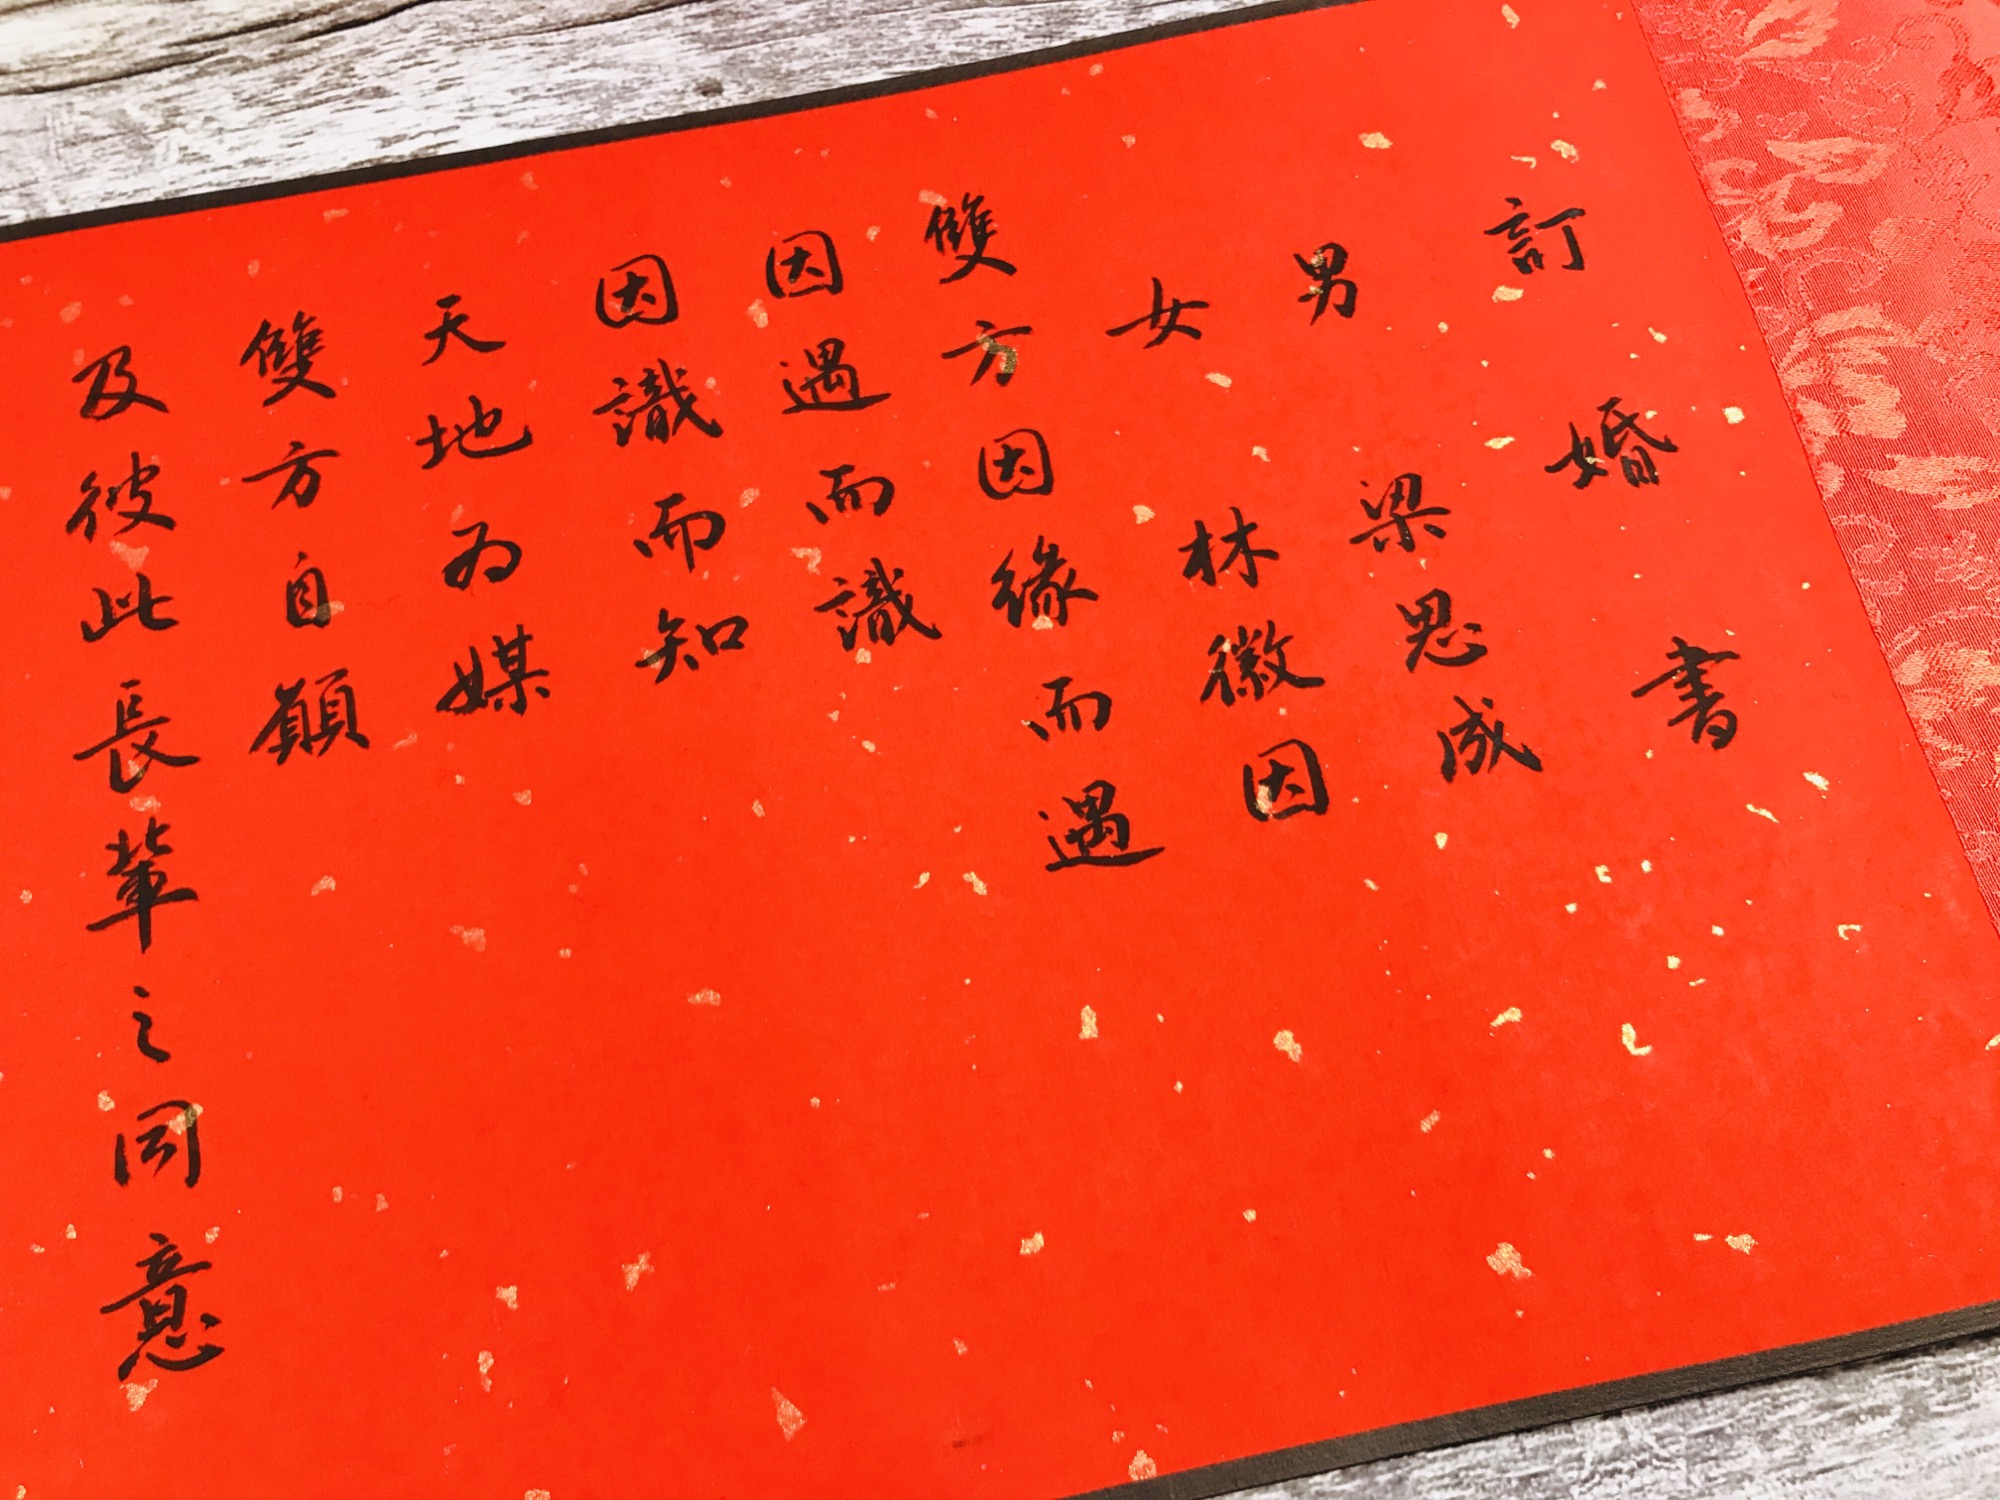 訂婚書
男 梁思成
女 林徽因
雙方因緣而遇
因遇而識
因識而知
天地为媒
雙方自願
及彼此長輩之同意